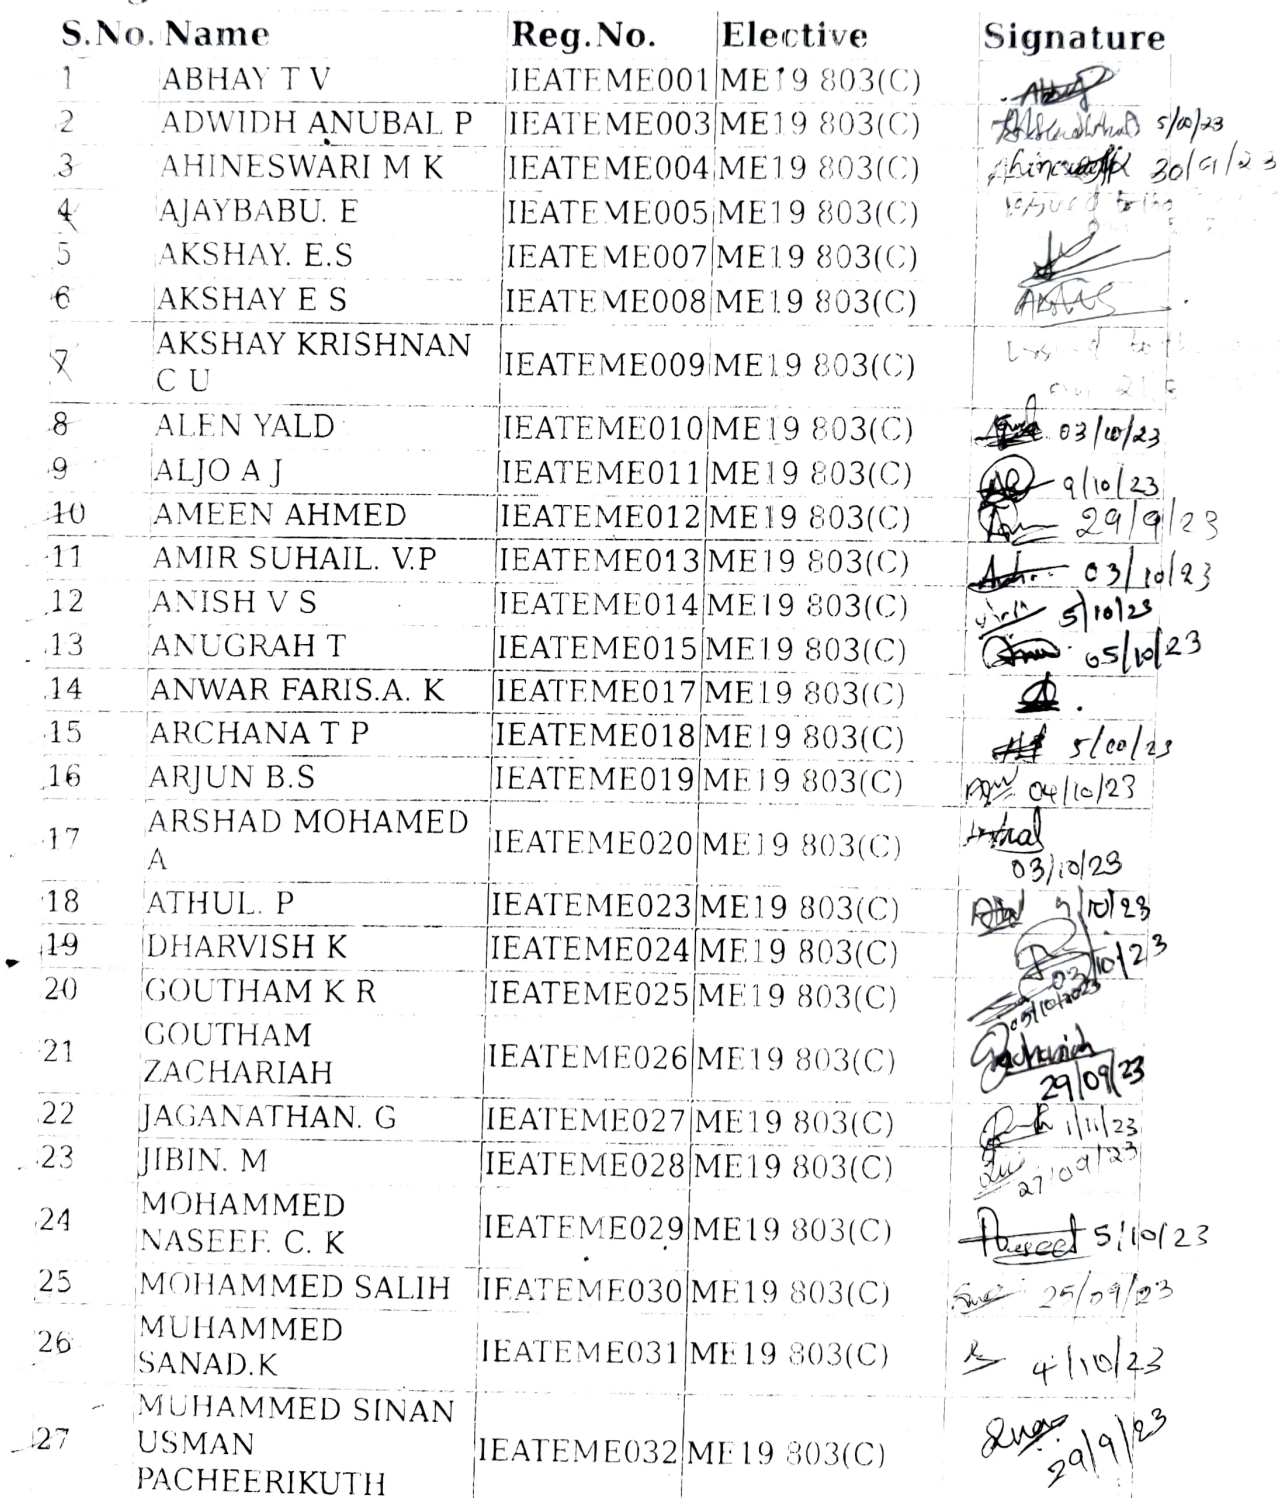 S.No. Name Reg.No. Elective Signature
1 ABHAY T V IEATEME001 ME19 803(C)
2 ADWIDH ANUBAL P IEATEME003 ME19 803(C) 5/00/23
3 AHINESWARI M K IEATEME004 ME19 803(C) 30/9/23
4 AJAYBABU. E IEATEME005 ME19 803(C) issued to the
5 AKSHAY. E.S IEATEME007 ME19 803(C)
6 AKSHAY E S IEATEME008 ME19 803(C)
AKSHAY KRISHNAN
7 IEATEME009 ME19 803(C)
C U
8 ALEN YALD IEATEME010 ME19 803(C) 03/10/23
9 ALJO A J IEATEME011 ME19 803(C) 9/10/23
10 AMEEN AHMED IEATEME012 ME19 803(C) 29/9/23
11 AMIR SUHAIL. V.P IEATEME013 ME19 803(C) 03/10/23
12 ANISH V S IEATEME014 ME19 803(C) 5/10/23
13 ANUGRAH T IEATEME015 ME19 803(C) 05/10/23
14 ANWAR FARIS.A. K IEATEME017 ME19 803(C)
15 ARCHANA T P IEATEME018 ME19 803(C) 5/00/23
16 ARJUN B.S IEATEME019 ME19 803(C) 04/10/23
ARSHAD MOHAMED
17 IEATEME020 ME19 803(C)
A 03/10/23
18 ATHUL. P IEATEME023 ME19 803(C) 9/10/23
19 DHARVISH K IEATEME024 ME19 803(C) 03/10/23
20 GOUTHAM K R IEATEME025 ME19 803(C) 05/10/2023
GOUTHAM
21 IEATEME026 ME19 803(C) Zachariah
ZACHARIAH 29/09/23
22 JAGANATHAN. G IEATEME027 ME19 803(C) 1/11/23
23 JIBIN. M IEATEME028 ME19 803(C) 27/09/23
MOHAMMED
24 IEATEME029 ME19 803(C) Naseef 5/10/23
NASEEF. C. K
25 MOHAMMED SALIH IEATEME030 ME19 803(C) 25/09/23
MUHAMMED
26 IEATEME031 ME19 803(C) 4/10/23
SANAD.K
MUHAMMED SINAN
27 USMAN IEATEME032 ME19 803(C) 29/9/23
PACHEERIKUTH